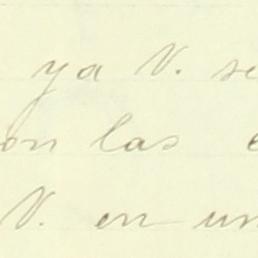 ya V. se
on las e
V. en un